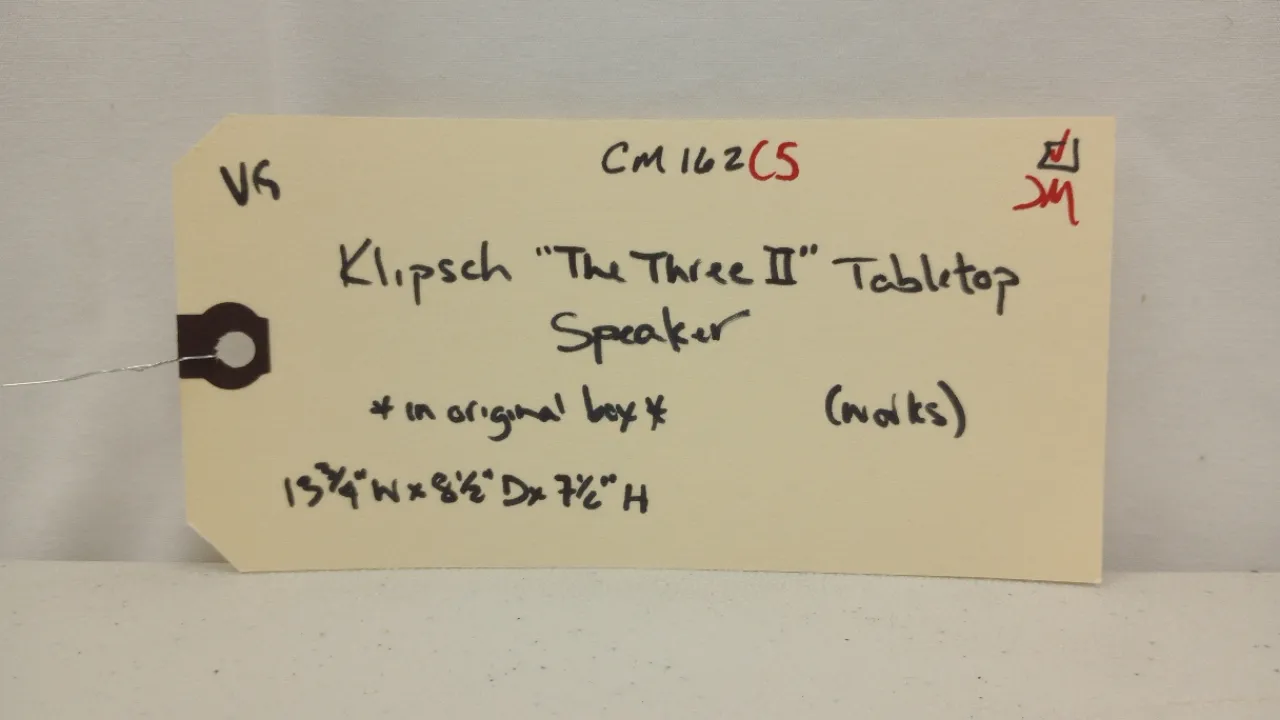 VG
CM162CS
JM
Klipsch "The Three II" Tabletop
Speaker
*in original box* (works)
13 3/4" W x 8 1/2" D x 7 1/2" H